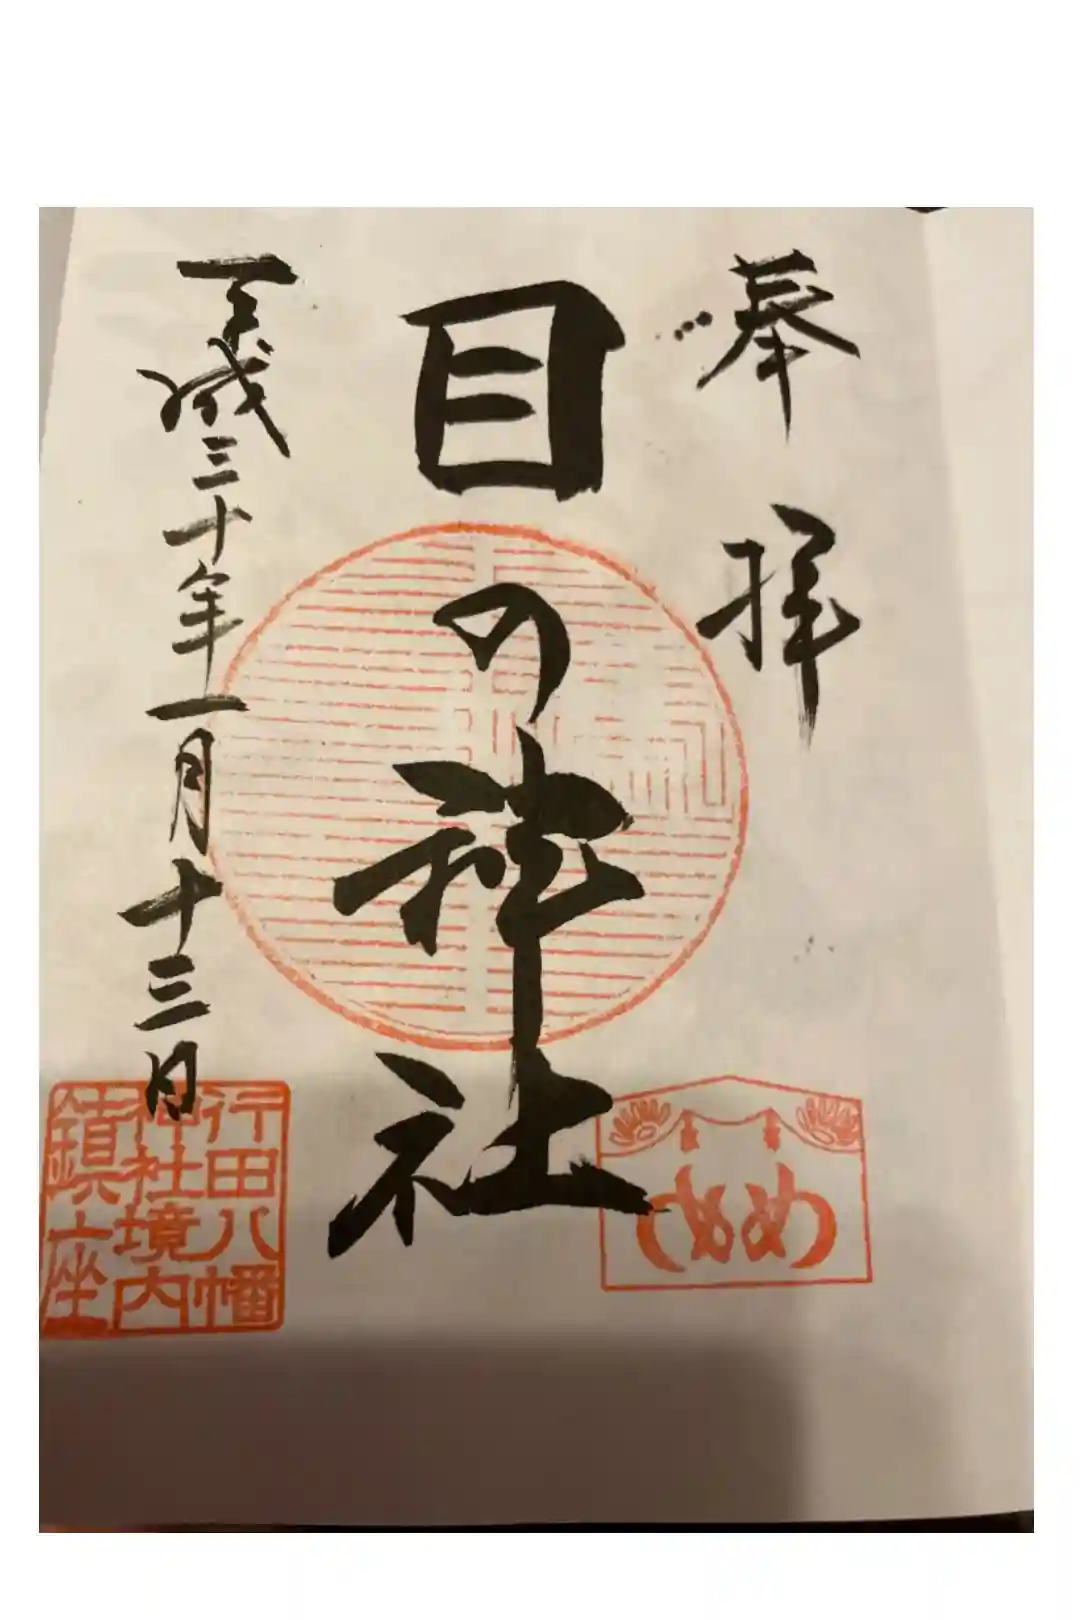 奉拝
目の神社
平成三十年一月十三日
行田八幡
神社境内
鎮座
めめ